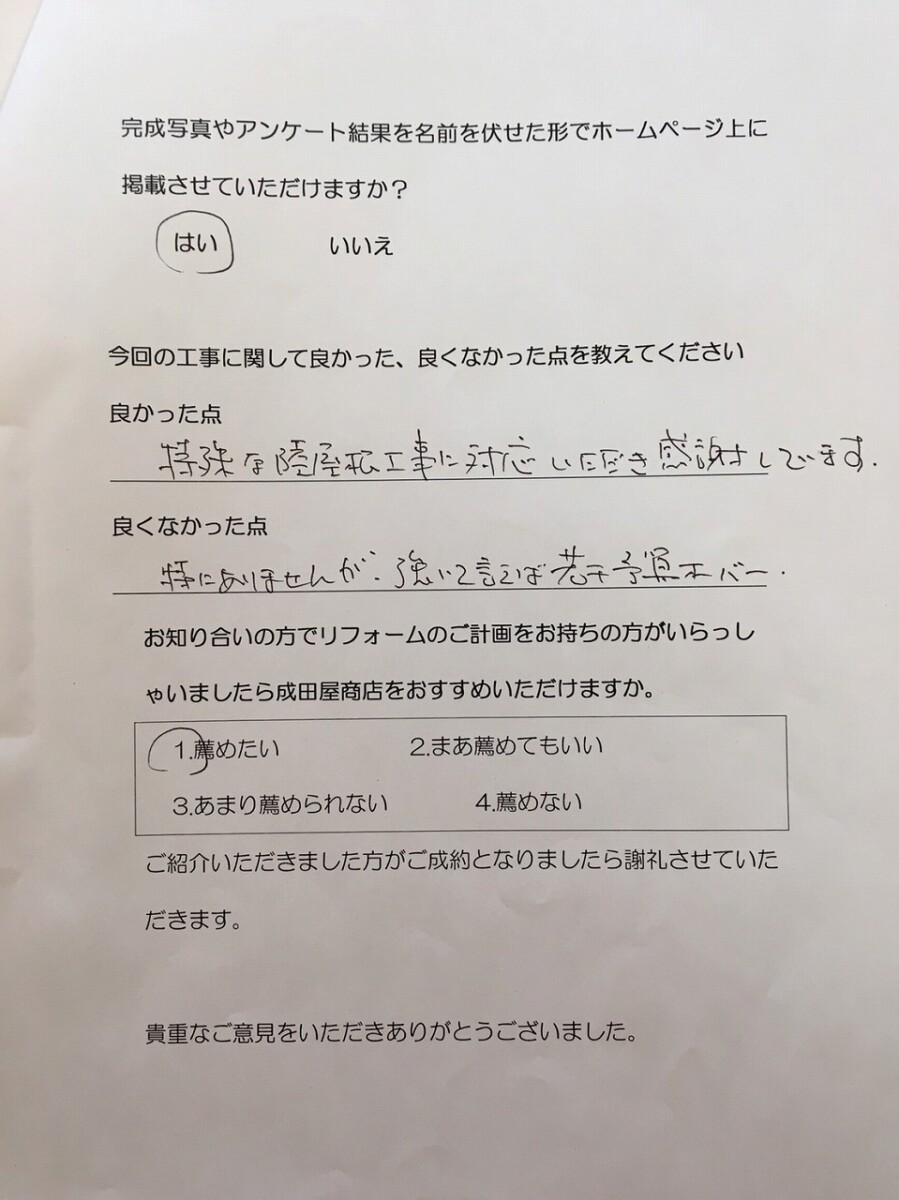 完成写真やアンケート結果を名前を伏せた形でホームページ上に
掲載させていただけますか？
はい いいえ
今回の工事に関して良かった、良くなかった点を教えてください
良かった点
特殊な陸屋根工事に対応いただき感謝しています.
良くなかった点
特にありませんが、強いて言えば若干予算オーバー.
お知り合いの方でリフォームのご計画をお持ちの方がいらっし
ゃいましたら成田屋商店をおすすめいただけますか。
1.薦めたい 2.まあ薦めてもいい
3.あまり薦められない 4.薦めない
ご紹介いただきました方がご成約となりましたら謝礼させていた
だきます。
貴重なご意見をいただきありがとうございました。